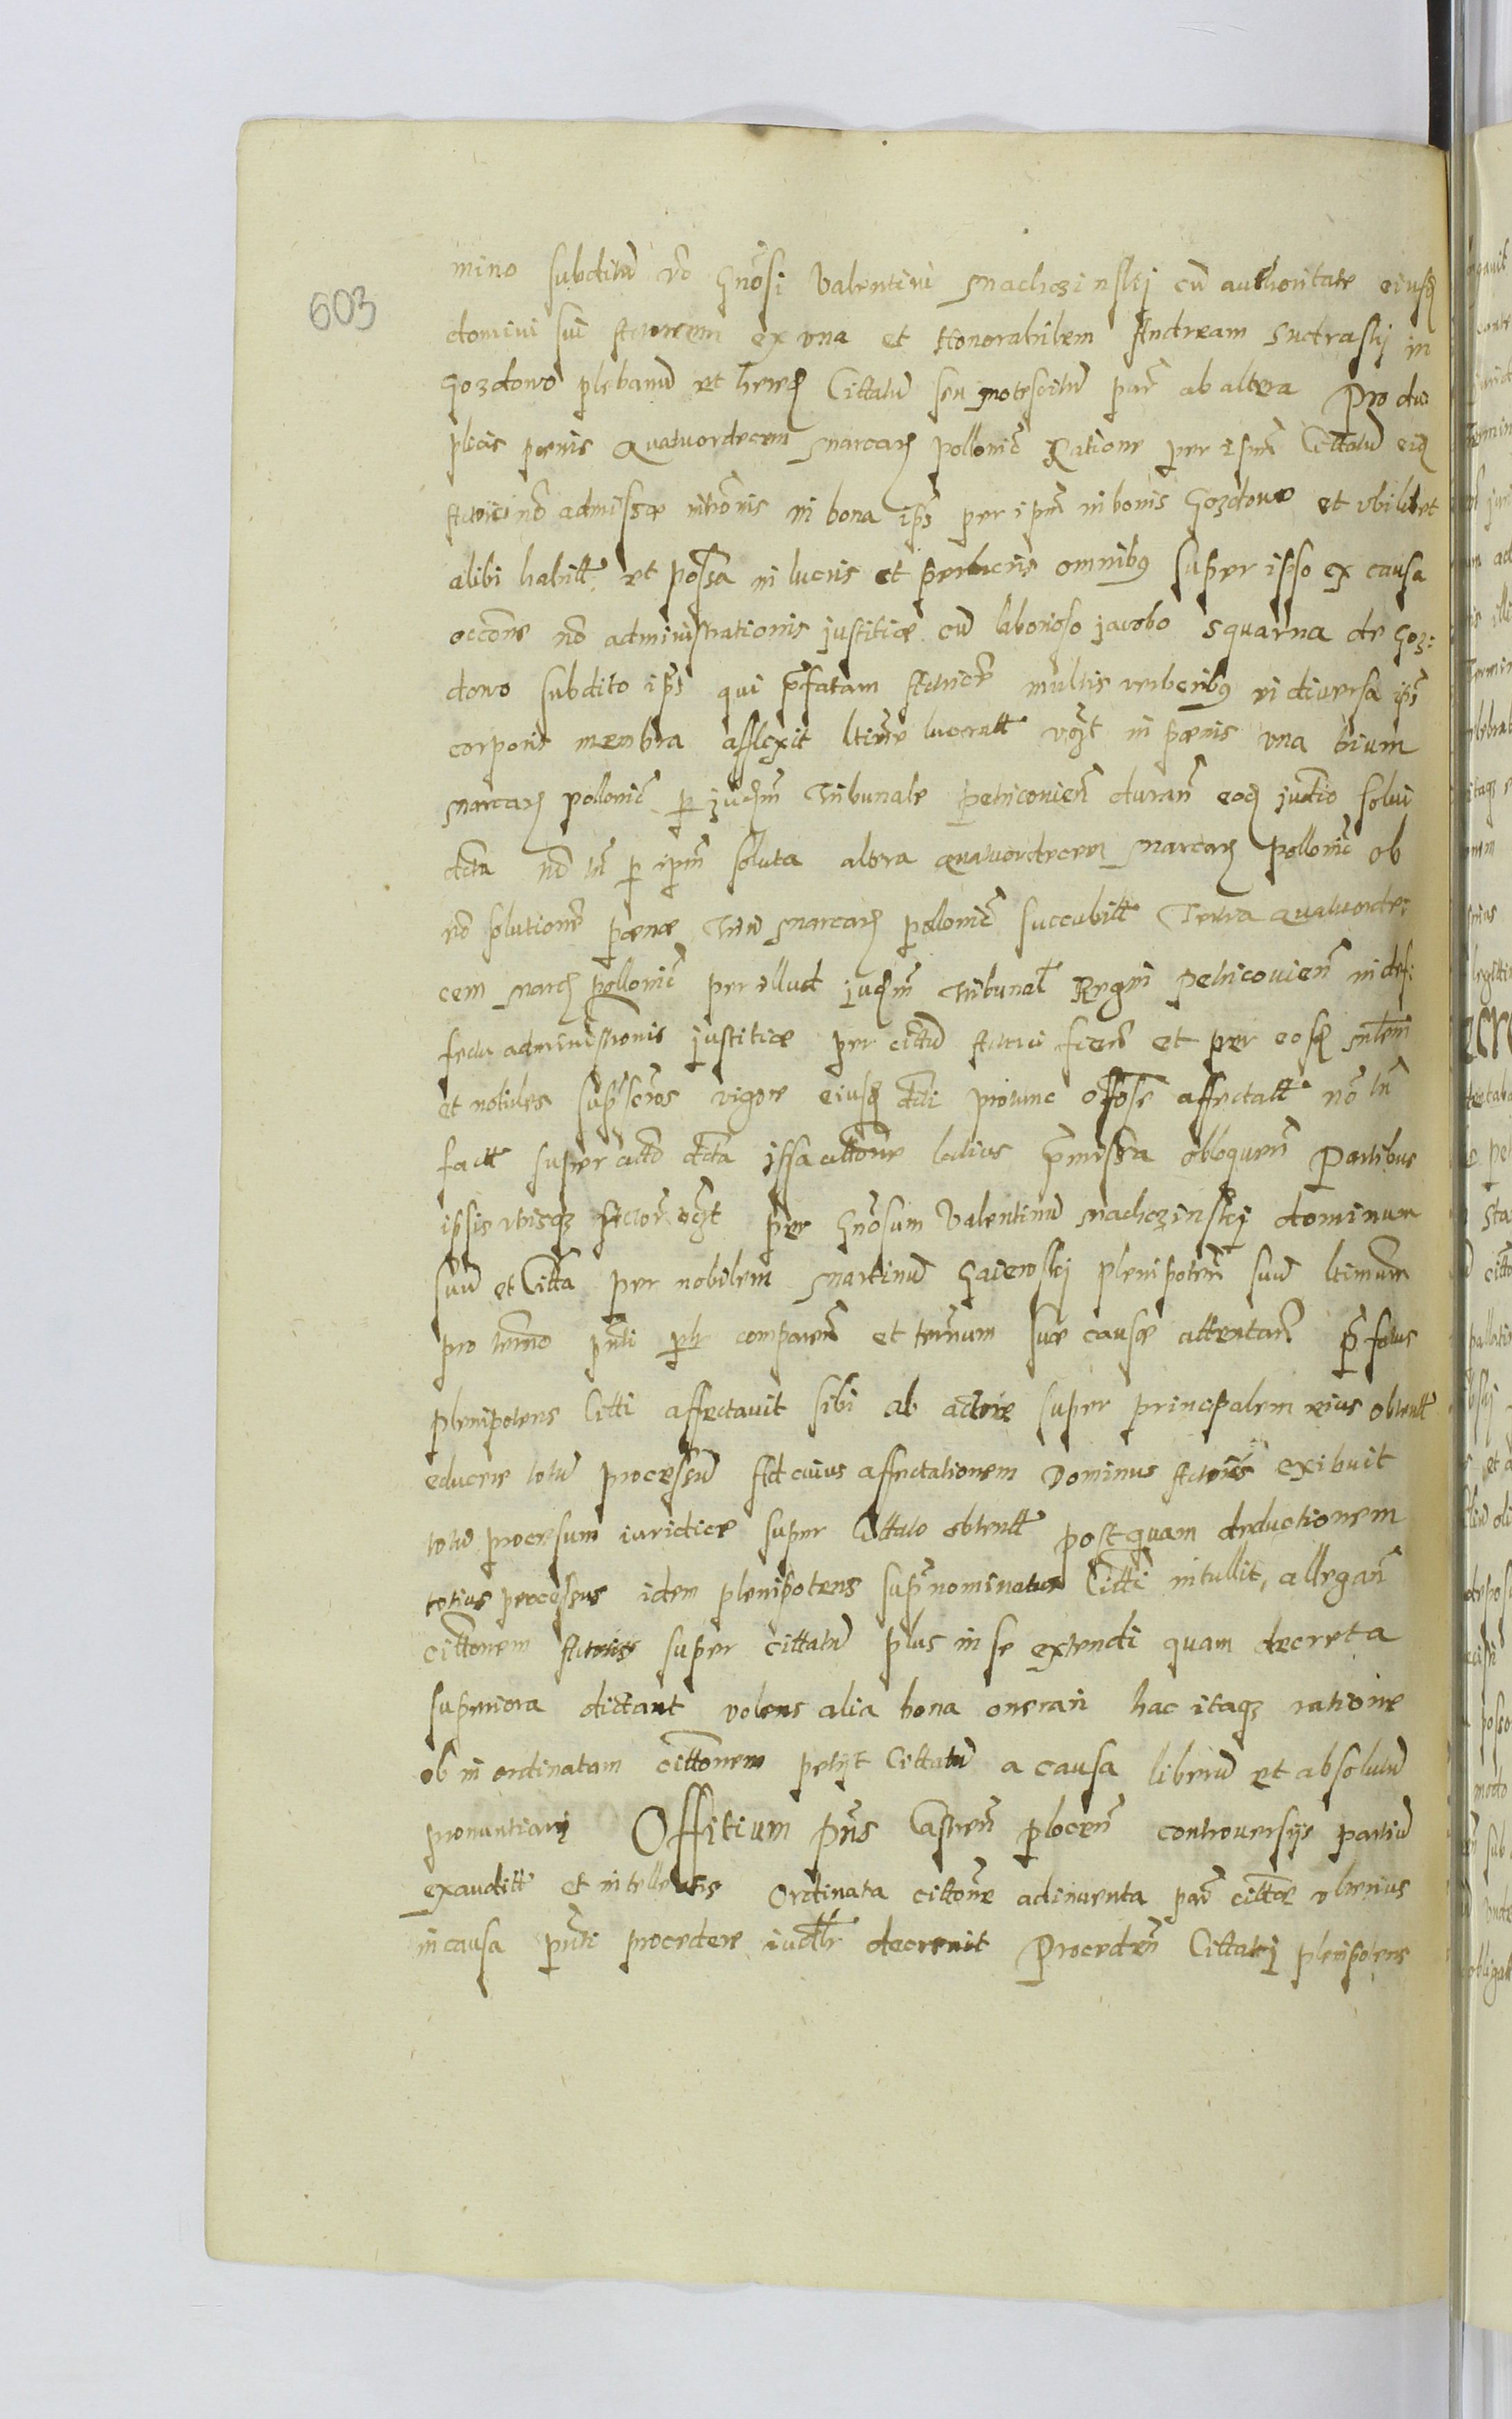 603
mino subditū vō Gnōsi Valentini Machczinskij cū authoritate eiusꝫ
domini sui Actorem ex vna et Honorabilem Andream Sudraskij in
Gozdowo plebanū et heredꝫ Cittatū seu notescitū par̄ ab altera Pro du
plicis pœnis Quatuordecem Marcarꝫ pollonic̄ Ratione per ipm̄ Cittatū eidꝫ
Actori nō admissæ intrōnis in bona ip̄s per ipm̄ in bonis Gozdowo et vbilibet
alibi habitt̄ et possa in lucris et perlucris omnibꝯ super ipso ex causa
occōne nō administrationis justitiæ cū laborioso jacobo Squarna de Goz:
dowo subdito ip̄s qui p̄fatam Actricē multis verberibꝯ in diversa ip̄s
corporis membra afflixit ltimē lucratt̄ vꝫt in pœnis vna trium
Marcarꝫ pollonic̄ p̱ judm̄ Tribunale petricouien̄ duran̄ eodꝫ judtio solui
dcta nō tn̄ p̱ ipm̄ soluta altera quatuordecem Marcarꝫ pollonic̄ ob
nō solutionē pœnæ Triū Marcarꝫ pollonic̄ succubitt̄ Tertia Quatuorde:
cem Marcꝫ pollonic̄ per illud judm̄ Tribunal̄ Regni petricouien̄ in def:
fectu administrōnis justitiæ per cittū Actrici fien̄ et per eosdꝫ
et nobiles vigore eiusdꝫ dcti protunc affectatt̄ nō tn̄
fact̄ super dcta ipsa cittōne latius p̄missa obloquen̄ Partibus
ipsis vtrisqꝫ Actor̄ per Gnōsum Valentinū Machczinskij dominum
suū et Citta per nobilem Martinū Gaiewskij plenipoten̄ suū ltimum
pro termno pn̄ti comparen̄ et termnum suæ causæ attentan̄ P̄fatus
plenipotens Citti affectauit sibi ab actore super principalem eius obtentt̄
educere totū processum Ad cuius affectationem Dominus Actoris exibuit
totū procesum iuridice super Cittato obtentt̄ postquam deductionem
totius processus idem plenipotens sup̄nominatus Citti intullit, allegan̄
cittōnem Actoris super cittatū plus in se extendi quam decreta
superiora dictant volens alia bona onerari hac itaqꝫ ratione
ob in ordinatam cittōnem petijt Cittatū a causa liberū et absolutū
pronuntiari Offitium pn̄s Castren̄ plocen̄ controuersijs partiū
exauditt̄ et intellectis Ordinata cittōne adinuenta par̄ cittæ vlterius
in causa pn̄ti procedere iudlr̄ decreuit Proceden̄ Cittati plenipotens